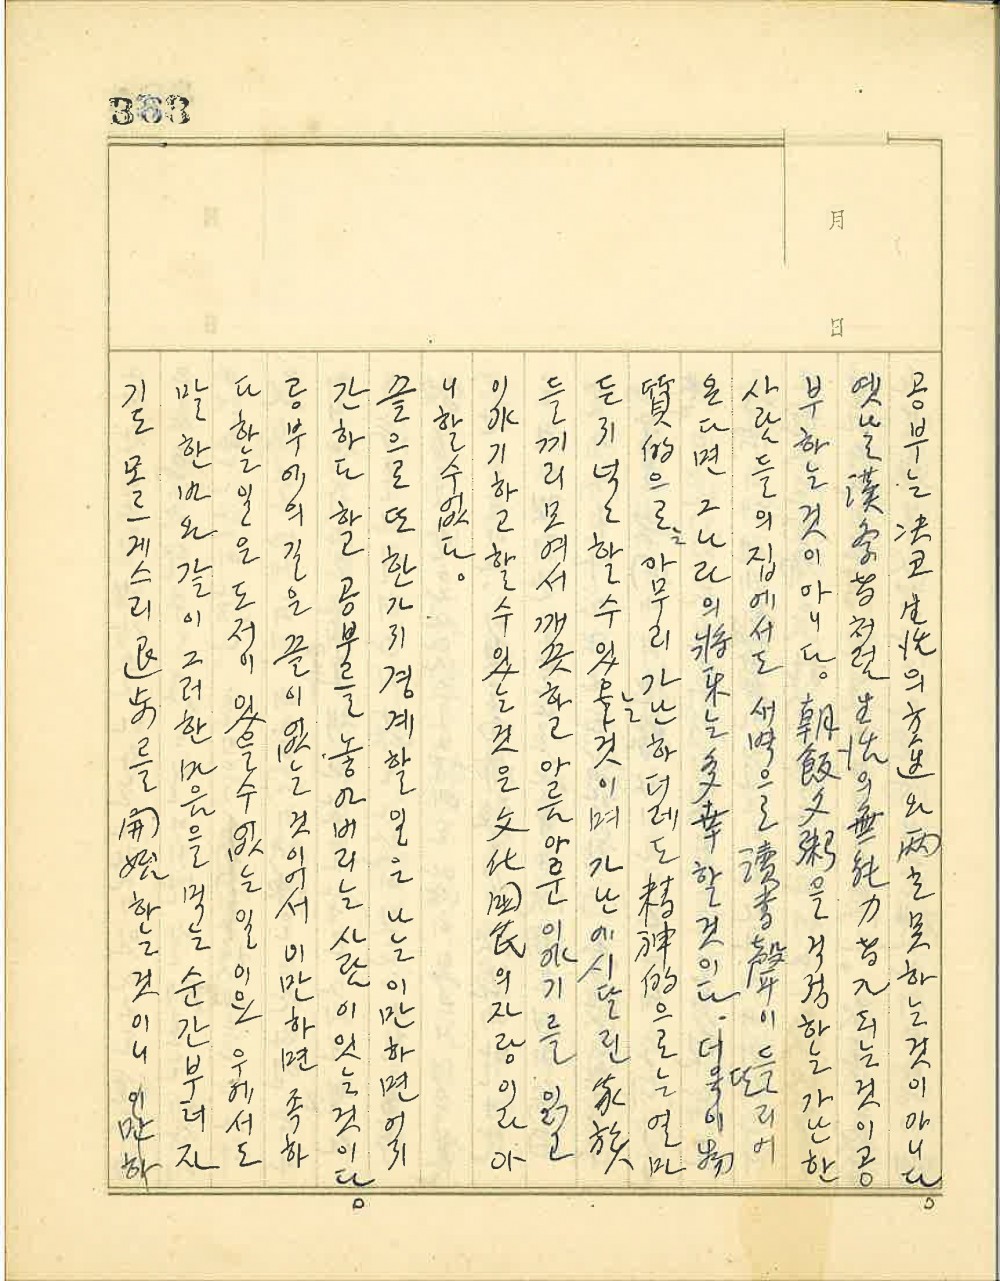 363
月
日
공부는 決코 生活의 方途와 両호 못하는것이아니다
옛날 漢学者처럼 生活의 無能力者가 되는것이공
부하는것이아니다。朝飯夕粥을 걱정하는 가난한
사람들의집에서도 새벽으로 讀書聲이 들리어
온다면 그나라의 將來는 多幸할것이다. 더욱이 物
質的으로는 아무리 가난하더래도 精神的으로는 얼마
든지 넉넉할수있을것이며 가난에시달린 家族
들끼리모여서 깨끗하고 아름다운 이야기를 읽고
이야기하고 할수 있는것은 文化国民의자랑일라아
니할수없다。
끝으로 또한가지경계할일은 나는이만하면 어지
간하다 하고 공부를 놓아버리는 사람이있는것이다
공부에의길은 끝이없는것이어서 이만하면 족하
다하는일은 도저이 있을수없는일이오 우에서도
말한바와같이 그러한마음을먹는 순간부터 자
기도 모르게스리 退歩를 開始하는것이니 이만하